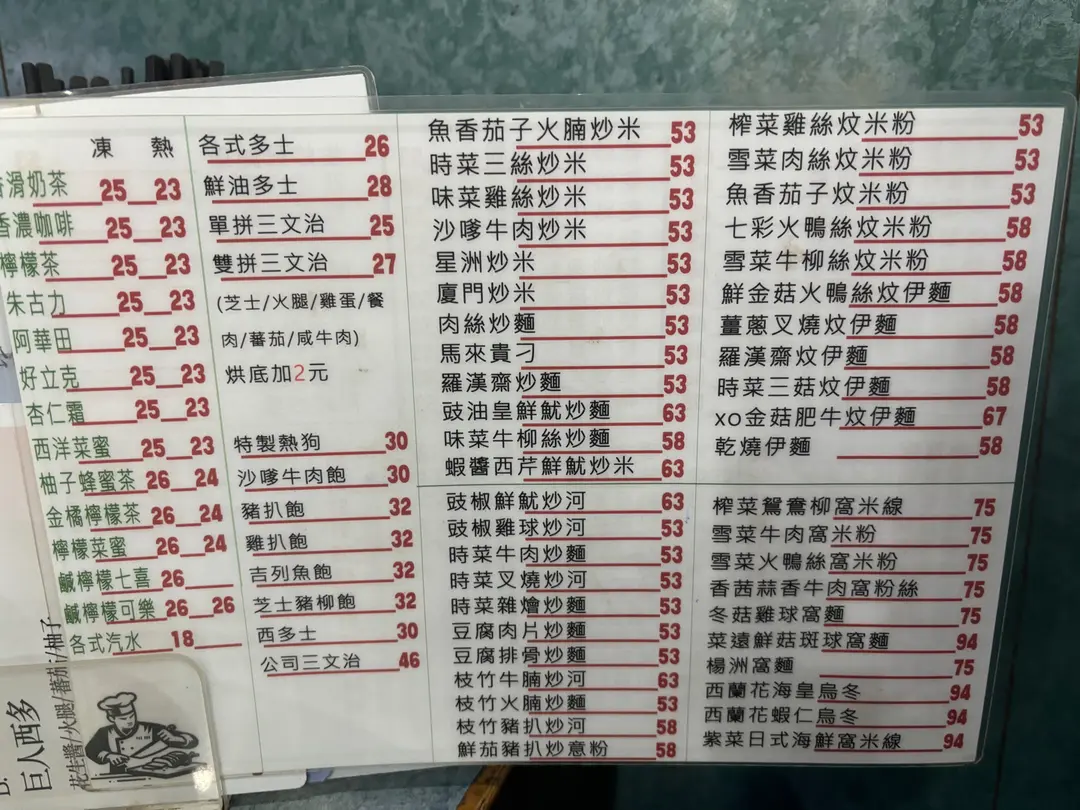 凍 熱
滑奶茶 25 23
香濃咖啡 25 23
檸檬茶 25 23
朱古力 25 23
阿華田 25 23
好立克 25 23
杏仁霜 25 23
西洋菜蜜 25 23
柚子蜂蜜茶 26 24
金橘檸檬茶 26 24
檸檬菜蜜 26 24
鹹檸檬七喜 26
鹹檸檬可樂 26 26
各式汽水 18
各式多士 26
鮮油多士 28
單拼三文治 25
雙拼三文治 27
(芝士/火腿/雞蛋/餐
肉/蕃茄/咸牛肉)
烘底加2元
特製熱狗 30
沙嗲牛肉飽 30
豬扒飽 32
雞扒飽 32
吉列魚飽 32
芝士豬柳飽 32
西多士 30
公司三文治 46
魚香茄子火腩炒米 53
時菜三絲炒米 53
味菜雞絲炒米 53
沙嗲牛肉炒米 53
星洲炒米 53
廈門炒米 53
肉絲炒麵 53
馬來貴刁 53
羅漢齋炒麵 53
豉油皇鮮魷炒麵 63
味菜牛柳絲炒麵 58
蝦醬西芹鮮魷炒米 63
豉椒鮮魷炒河 63
豉椒雞球炒河 53
時菜牛肉炒麵 53
時菜叉燒炒河 53
時菜雜燴炒麵 53
豆腐肉片炒麵 53
豆腐排骨炒麵 53
枝竹牛腩炒河 63
枝竹火腩炒麵 53
枝竹豬扒炒河 58
鮮茄豬扒炒意粉 58
榨菜雞絲炆米粉 53
雪菜肉絲炆米粉 53
魚香茄子炆米粉 53
七彩火鴨絲炆米粉 58
雪菜牛柳絲炆米粉 58
鮮金菇火鴨絲炆伊麵 58
薑蔥叉燒炆伊麵 58
羅漢齋炆伊麵 58
時菜三菇炆伊麵 58
xo金菇肥牛炆伊麵 67
乾燒伊麵 58
榨菜鴛鴦柳窩米線 75
雪菜牛肉窩米粉 75
雪菜火鴨絲窩米粉 75
香茜蒜香牛肉窩粉絲 75
冬菇雞球窩麵 75
菜遠鮮菇斑球窩麵 94
楊洲窩麵 75
西蘭花海皇烏冬 94
西蘭花蝦仁烏冬 94
紫菜日式海鮮窩米線 94
巨人西多
花生醬/火腿/蕃茄/柚子